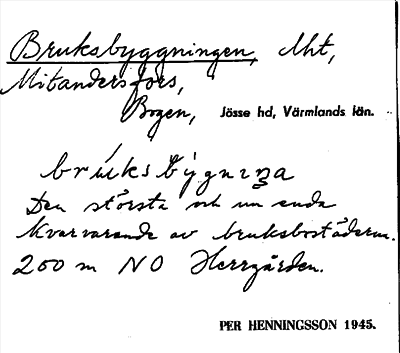 Bruksbyggningen, Mht,
Mitandersfors,
Bogen, Jösse hd, Värmlands län.
brúksb̀ygnıŋa
Den största och nu enda
kvarvarande av bruksbostäderna.
200 m NO Herrgården.
PER HENNINGSSON 1945.